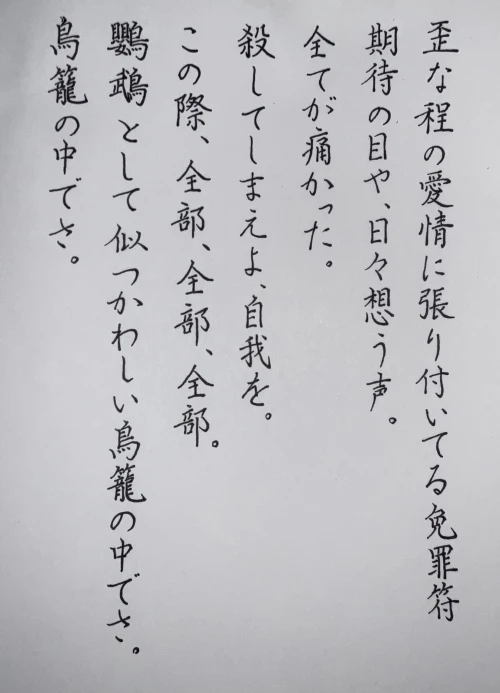 歪な程の愛情に張り付いてる免罪符
期待の目や、日々想う声。
全てが痛かった。
殺してしまえよ、自我を。
この際、全部、全部、全部。
鸚鵡として似つかわしい鳥籠の中でさ。
鳥籠の中でさ。